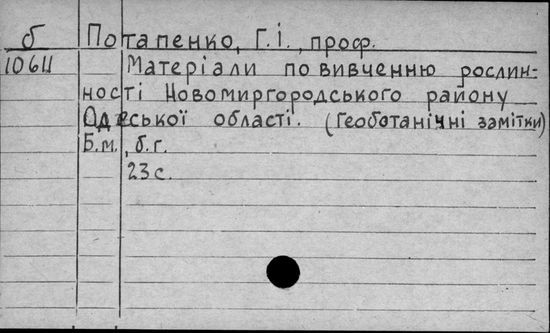 б Потапенко, Г.І., проф.
10611 Матеріали по вивченню рослин-
ності Новомиргородського району
Одеської області. (Геоботанічні замітки)
Б.м., б.г.
23 с.